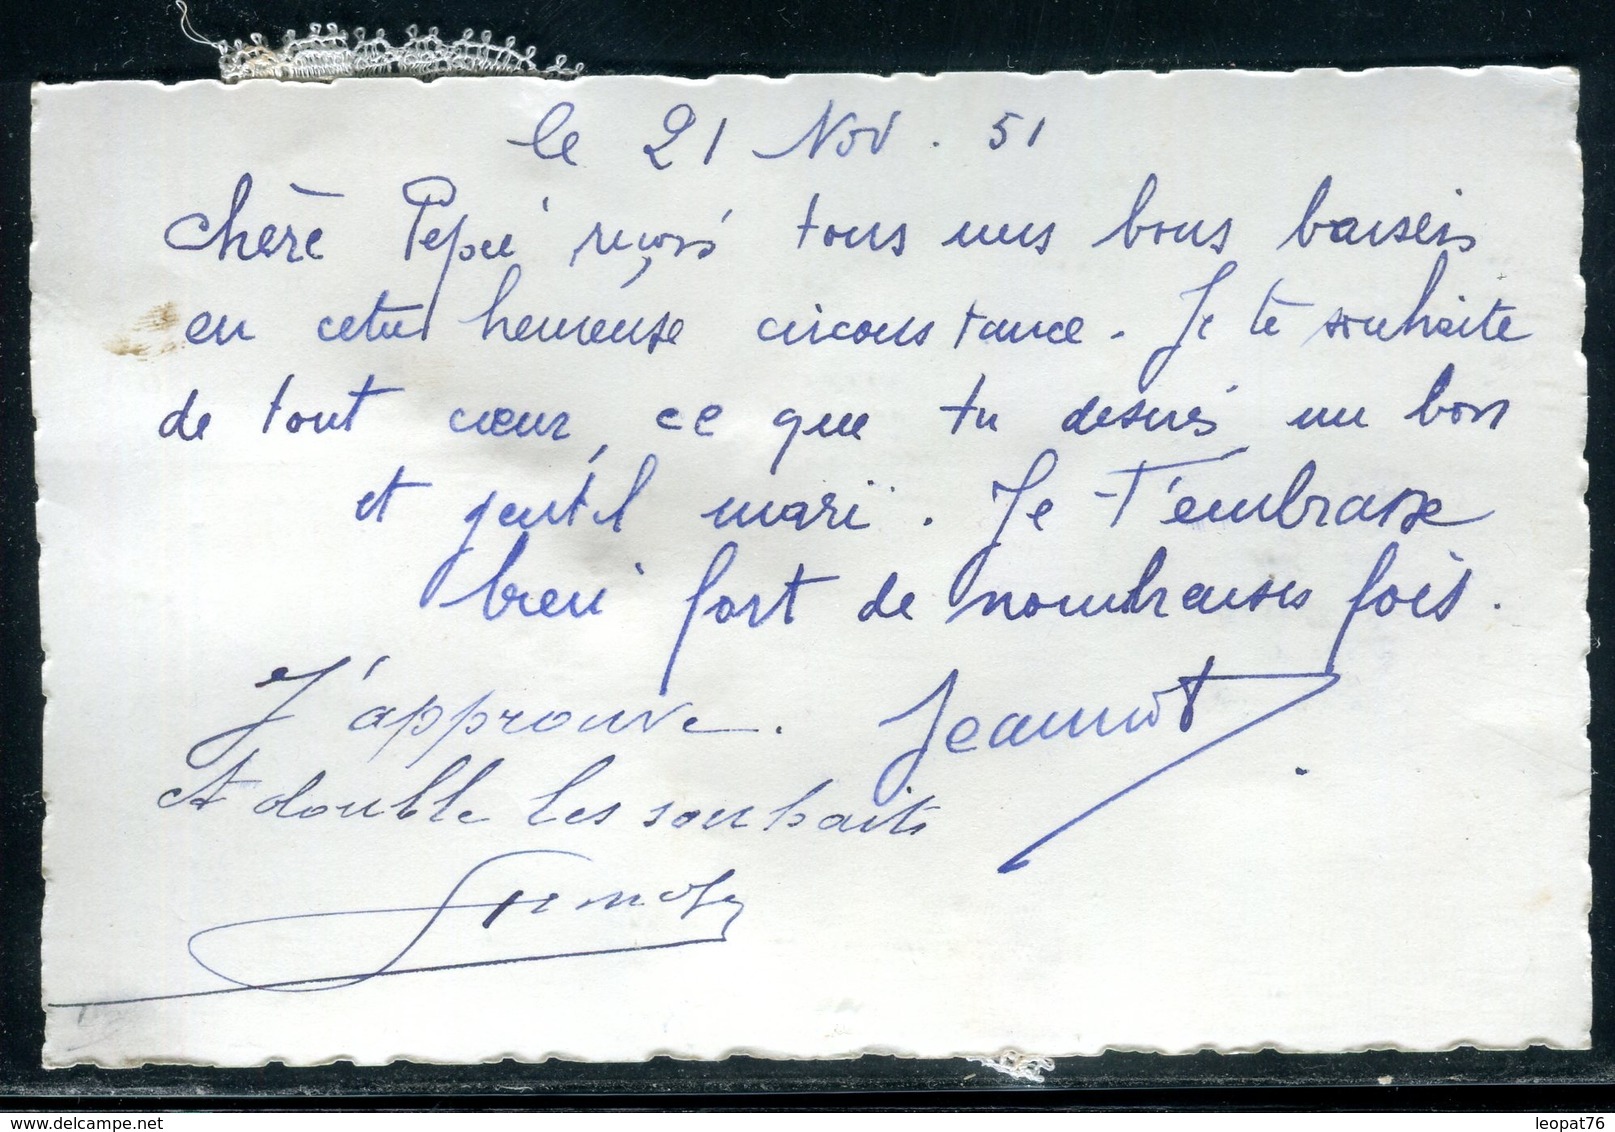 le 21 Nov. 51
Chère Pépée, reçois tous mes bons baisers
en cette heureuse circonstance. Je te souhaite
de tout cœur, ce que tu desires un bon
et gentil mari. Je t'embrasse
bien fort de nombreuses fois.
J'approuve. Jeannot
et double les souhaits
leopat76